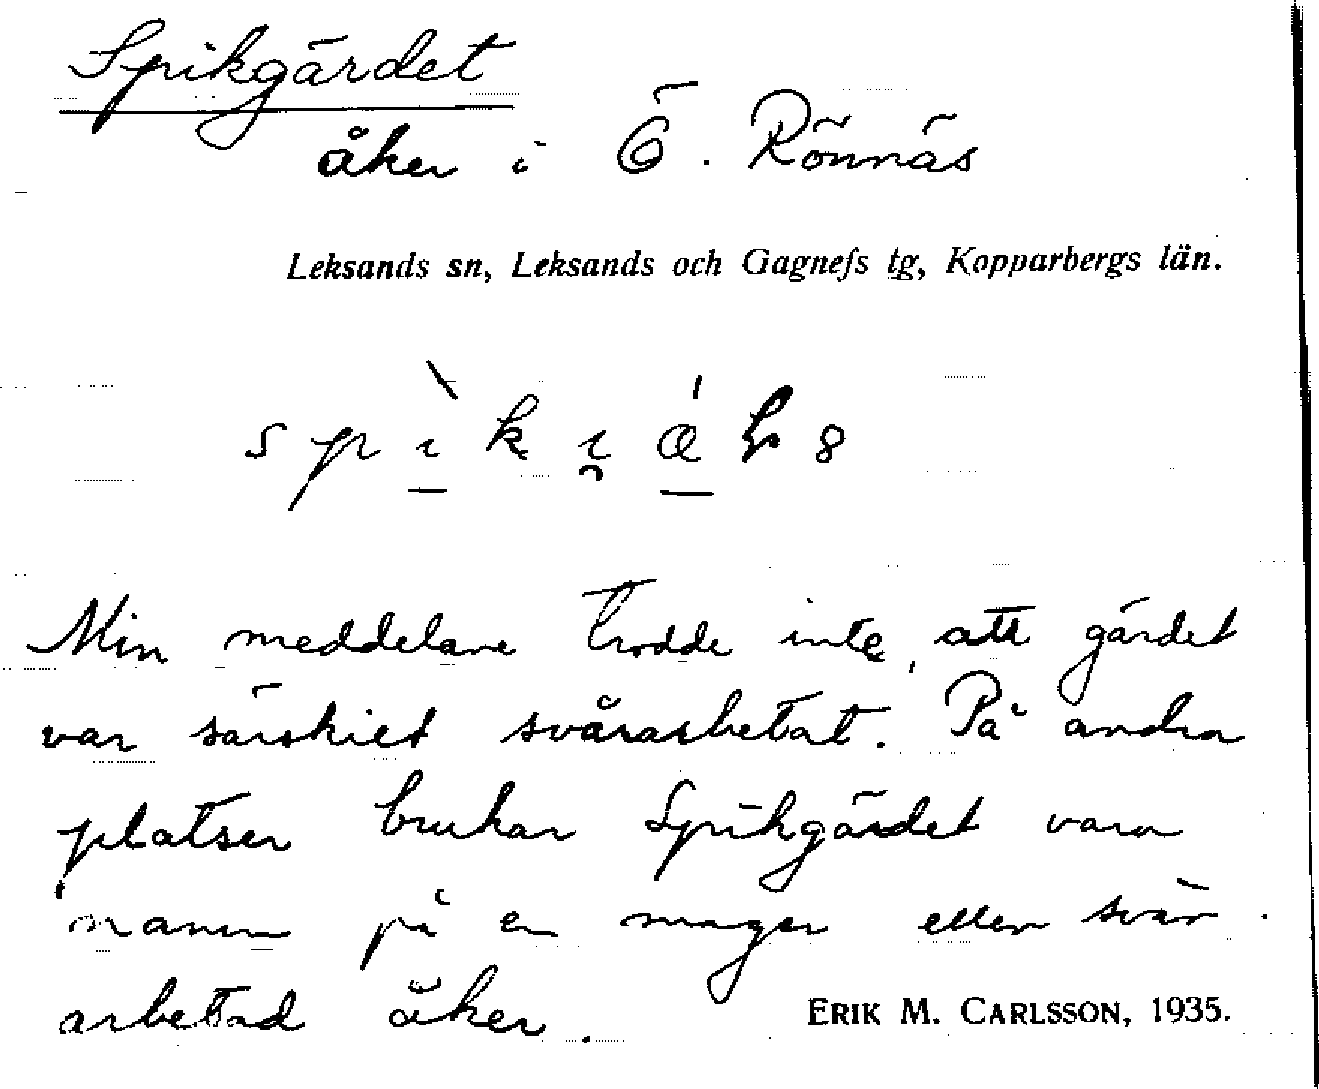 Spikgärdet
åker i Ö. Rönnäs
Leksands sn, Leksands och Gagnefs tg, Kopparbergs län.
Min meddelare trodde inte, att gärdet
var särskilt svårarbetat. På andra
platser brukar Spikgärdet vara
namn på en mager eller svår-
arbetad åker.
ERIK M. CARLSSON, 1935.